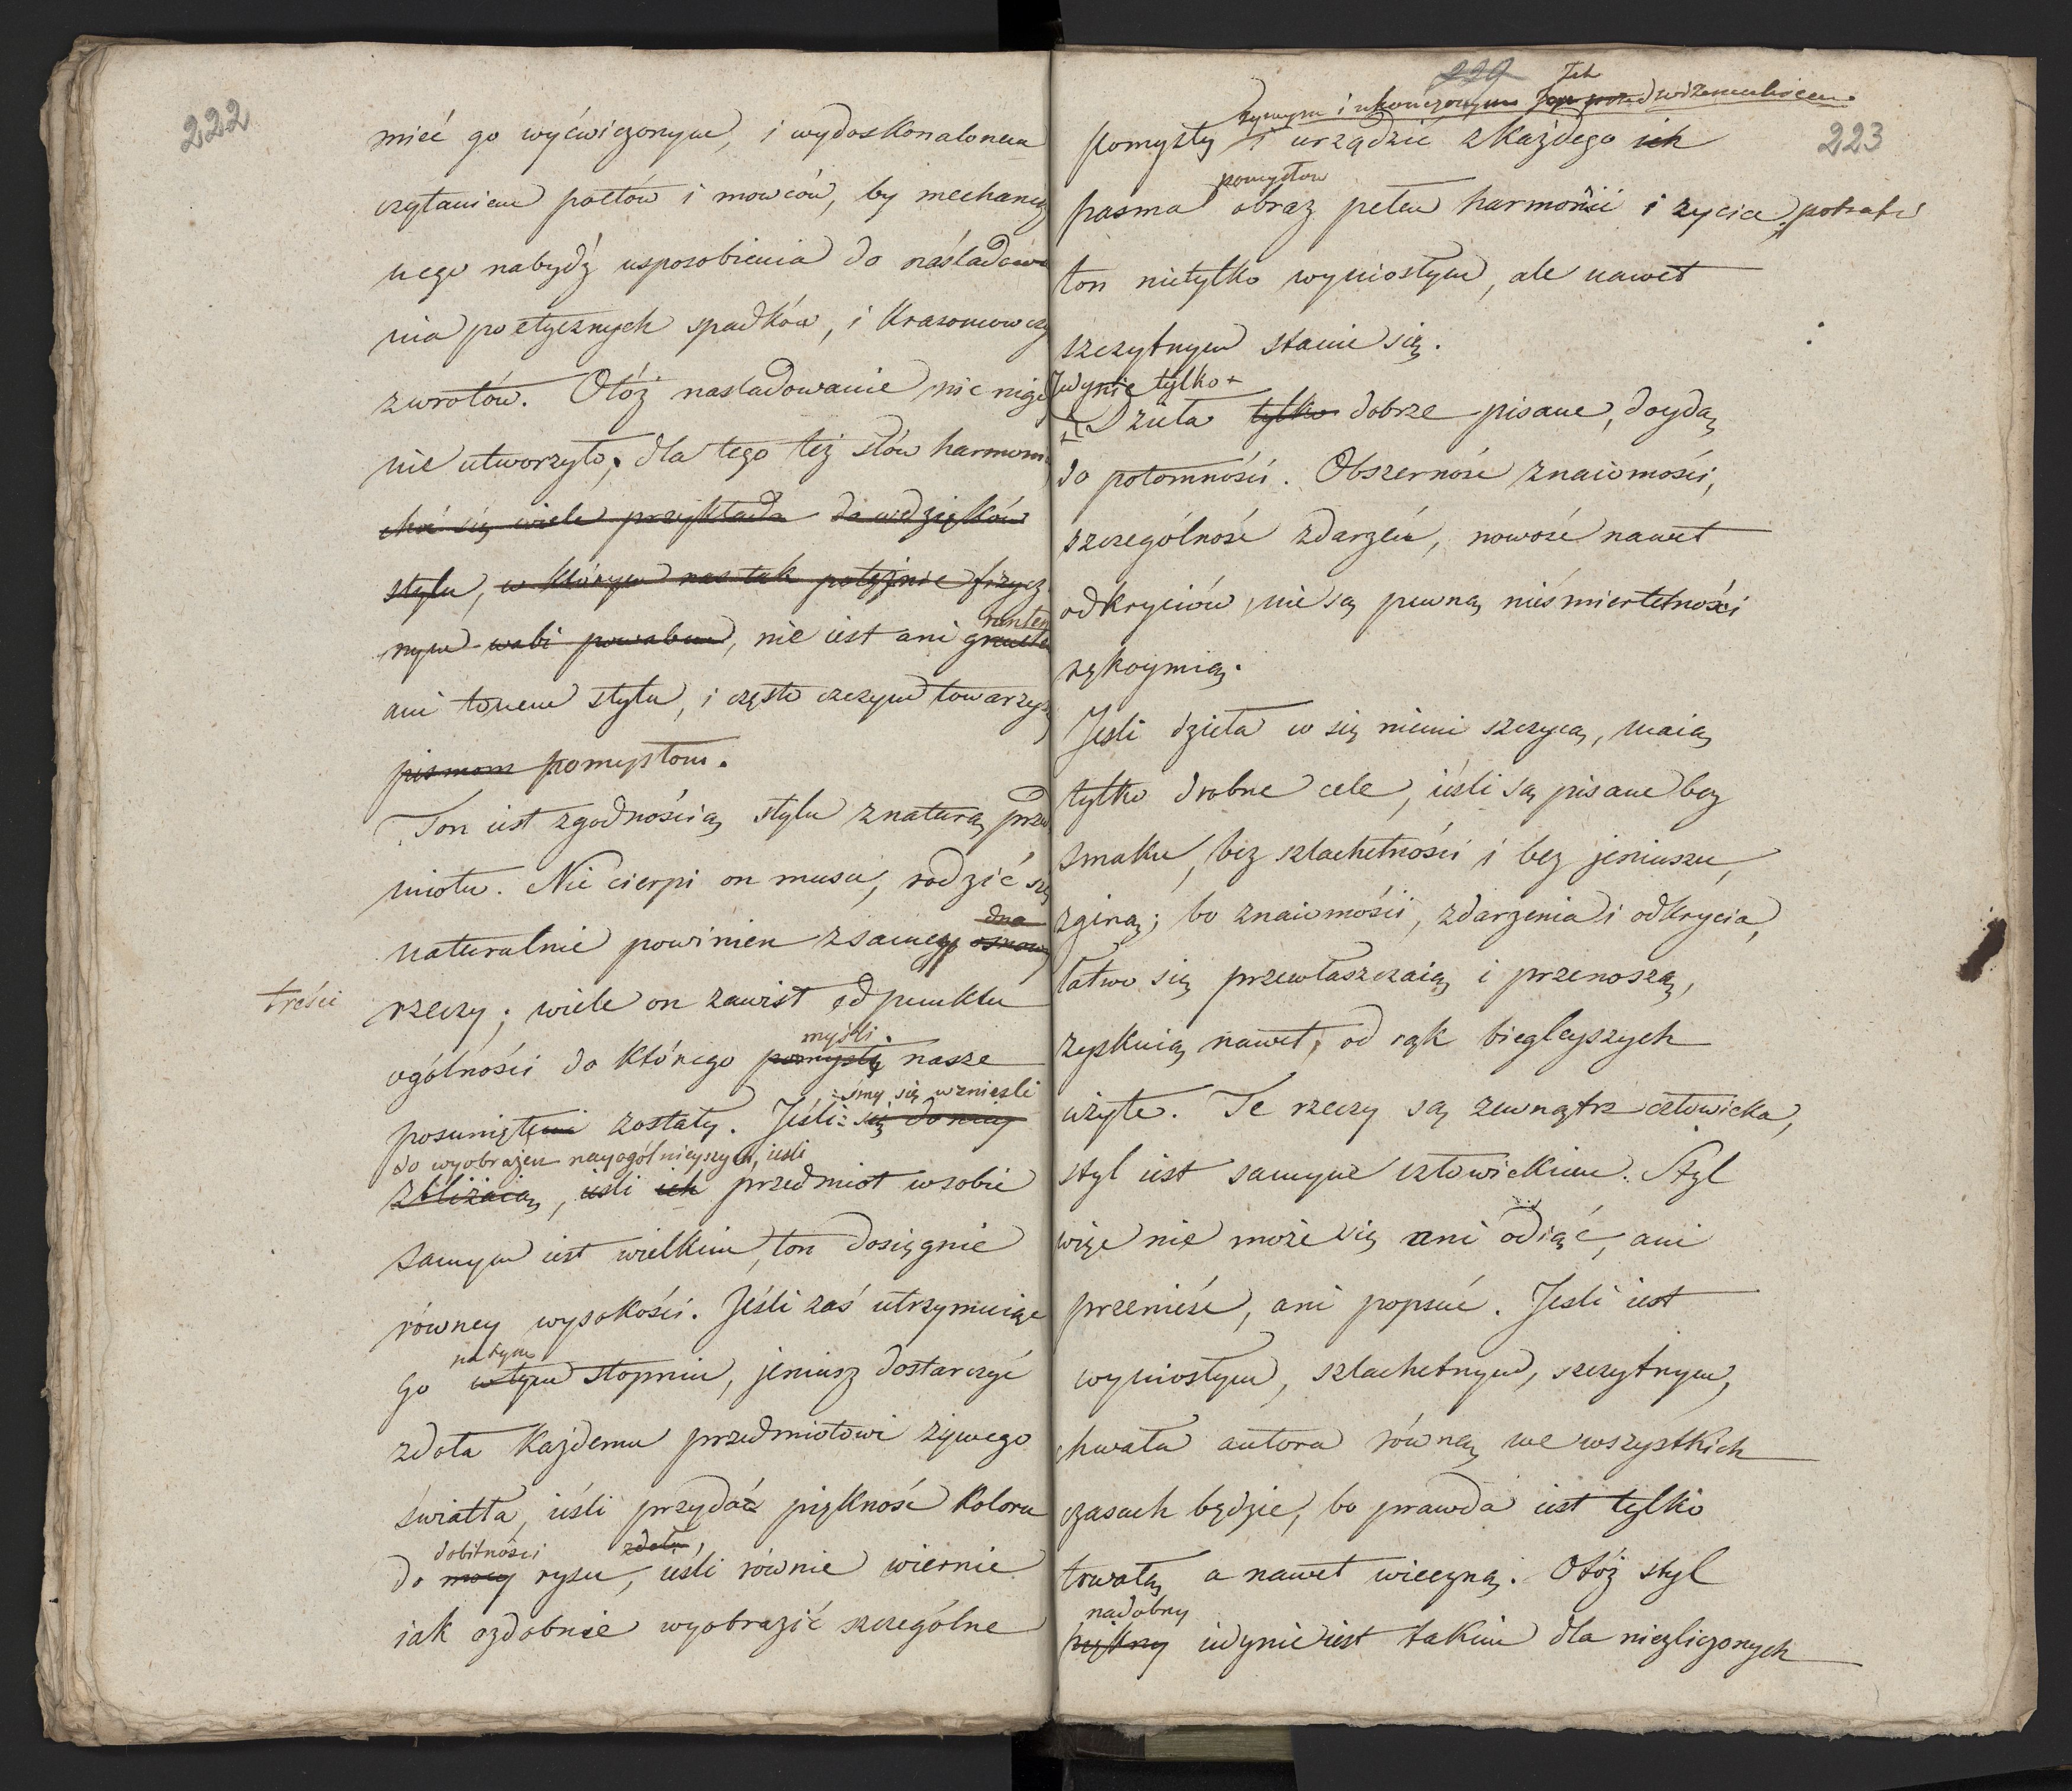 222
mieć go wyćwiczonym, i wydoskonalonem
czytaniem poetów i mowców, by mechanicz
nego nabydź usposobienia do naśladowa
nia poetycznych spadków, i krasomowczy
zwrotów. Otóż nasladowanie nic nigdy
nie utworzyło; dla tego też słów harmoni
choć się wiele przykłada do wdzięków
stylu, w którym nas tak potężnie fizycz
nym wabi powabem, nie iest ani
ani tonem stylu, i często czczym towarzysz
pismom pomysłom.
Ton iest zgodnością stylu z naturą przed
miotu. Nie cierpi on musu, rodzić się
dna
naturalnie powinien z samey osnowy
treści
rzeczy; wiele on zawisł od punktu
myśli
ogólności do którego pomysły nasze
śmy się wznieśli
posunięte zostały. Jeśli się do niey
do wyobrażeń nayogólnieyszych, ieśli
zbliżaią, ieśli ich przedmiot w sobie
samym iest wielkim, ton dosięgnie
równey wysokości. Jeśli zaś utrzymuiąc
na tym
go w tym stopniu, jeniusz dostarczyć
zdoła każdemu przedmiotowi żywego
światła, ieśli przydać piękność koloru
dobitności zdoła,
do mocy rysu, ieśli równie wiernie
iak ozdobnie wyobrazić szczególne
żywym i ukończonym
223
pomysły i urządzić z każdego ich
pomysłów
pasma obraz pełen harmonii i zycia potrafi
ton nietylko wyniosłym, ale nawet
szczytnym stanie się.
Jedynie tylko +
Dzieła tylko dobrze pisane, doydą
do potomności. Obszerność znaiomości,
szczególność zdarzeń, nowość nawet
odkryciów, nie są pewną nieśmiertelności
rękoymią.
Jeśli dzieła co się niemi szczycą, maią
tylko drobne cele, ieśli są pisane bez
smaku, bez szlachetności i bez jeniuszu,
zginą; bo znaiomości, zdarzenia i odkrycia,
łatwo się przewłaszczaią i przenoszą,
zyskuią nawet, od rąk bieglejszych
użyte. Te rzeczy są zewnątrz człowieka,
styl iest samym człowiekiem. Styl
więc nie może się ani odiąć, ani
przenieść, ani popsuć. Jeśli iest
wyniosłym, szlachetnym, szczytnym,
chwała autora równą we wszystkich
czasach będzie, bo prawda iest tylko
trwałą a nawet wieczną. Otóż styl
nadobny
piękny iedynie iest takim dla niezliczonych